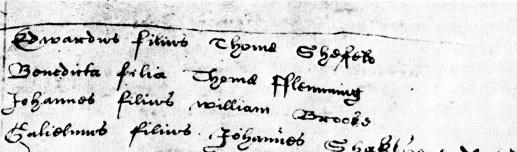 Edwardus filius Thome Shefeld
Benedicta filia Thome fflemming
Johannes filius William Brooks
Gulielmus filius Johannes